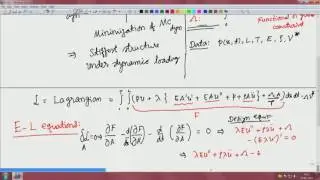 Minimization of MC dyn
⇒ Stiffest structure
under dynamic loading
Λ:
Functional in
constraint
Data: p(x,t), L, T, E, ρ, V*
L = Lagrangian = ∫∫ (pu + λ { EA'u' + EAu'' + p + ρAü } + ΛA/T) dx dt
F
E-L equations:
δL = 0 ⇒ ∂F/∂A - d/dx (∂F/∂A') - d/dt (∂F/∂Ȧ) = 0 ⇒
A
Design eqn:
λEu'' + ρλü + Λ
- (Eλu')' = 0
⇒ λEu'' + ρλü + Λ -